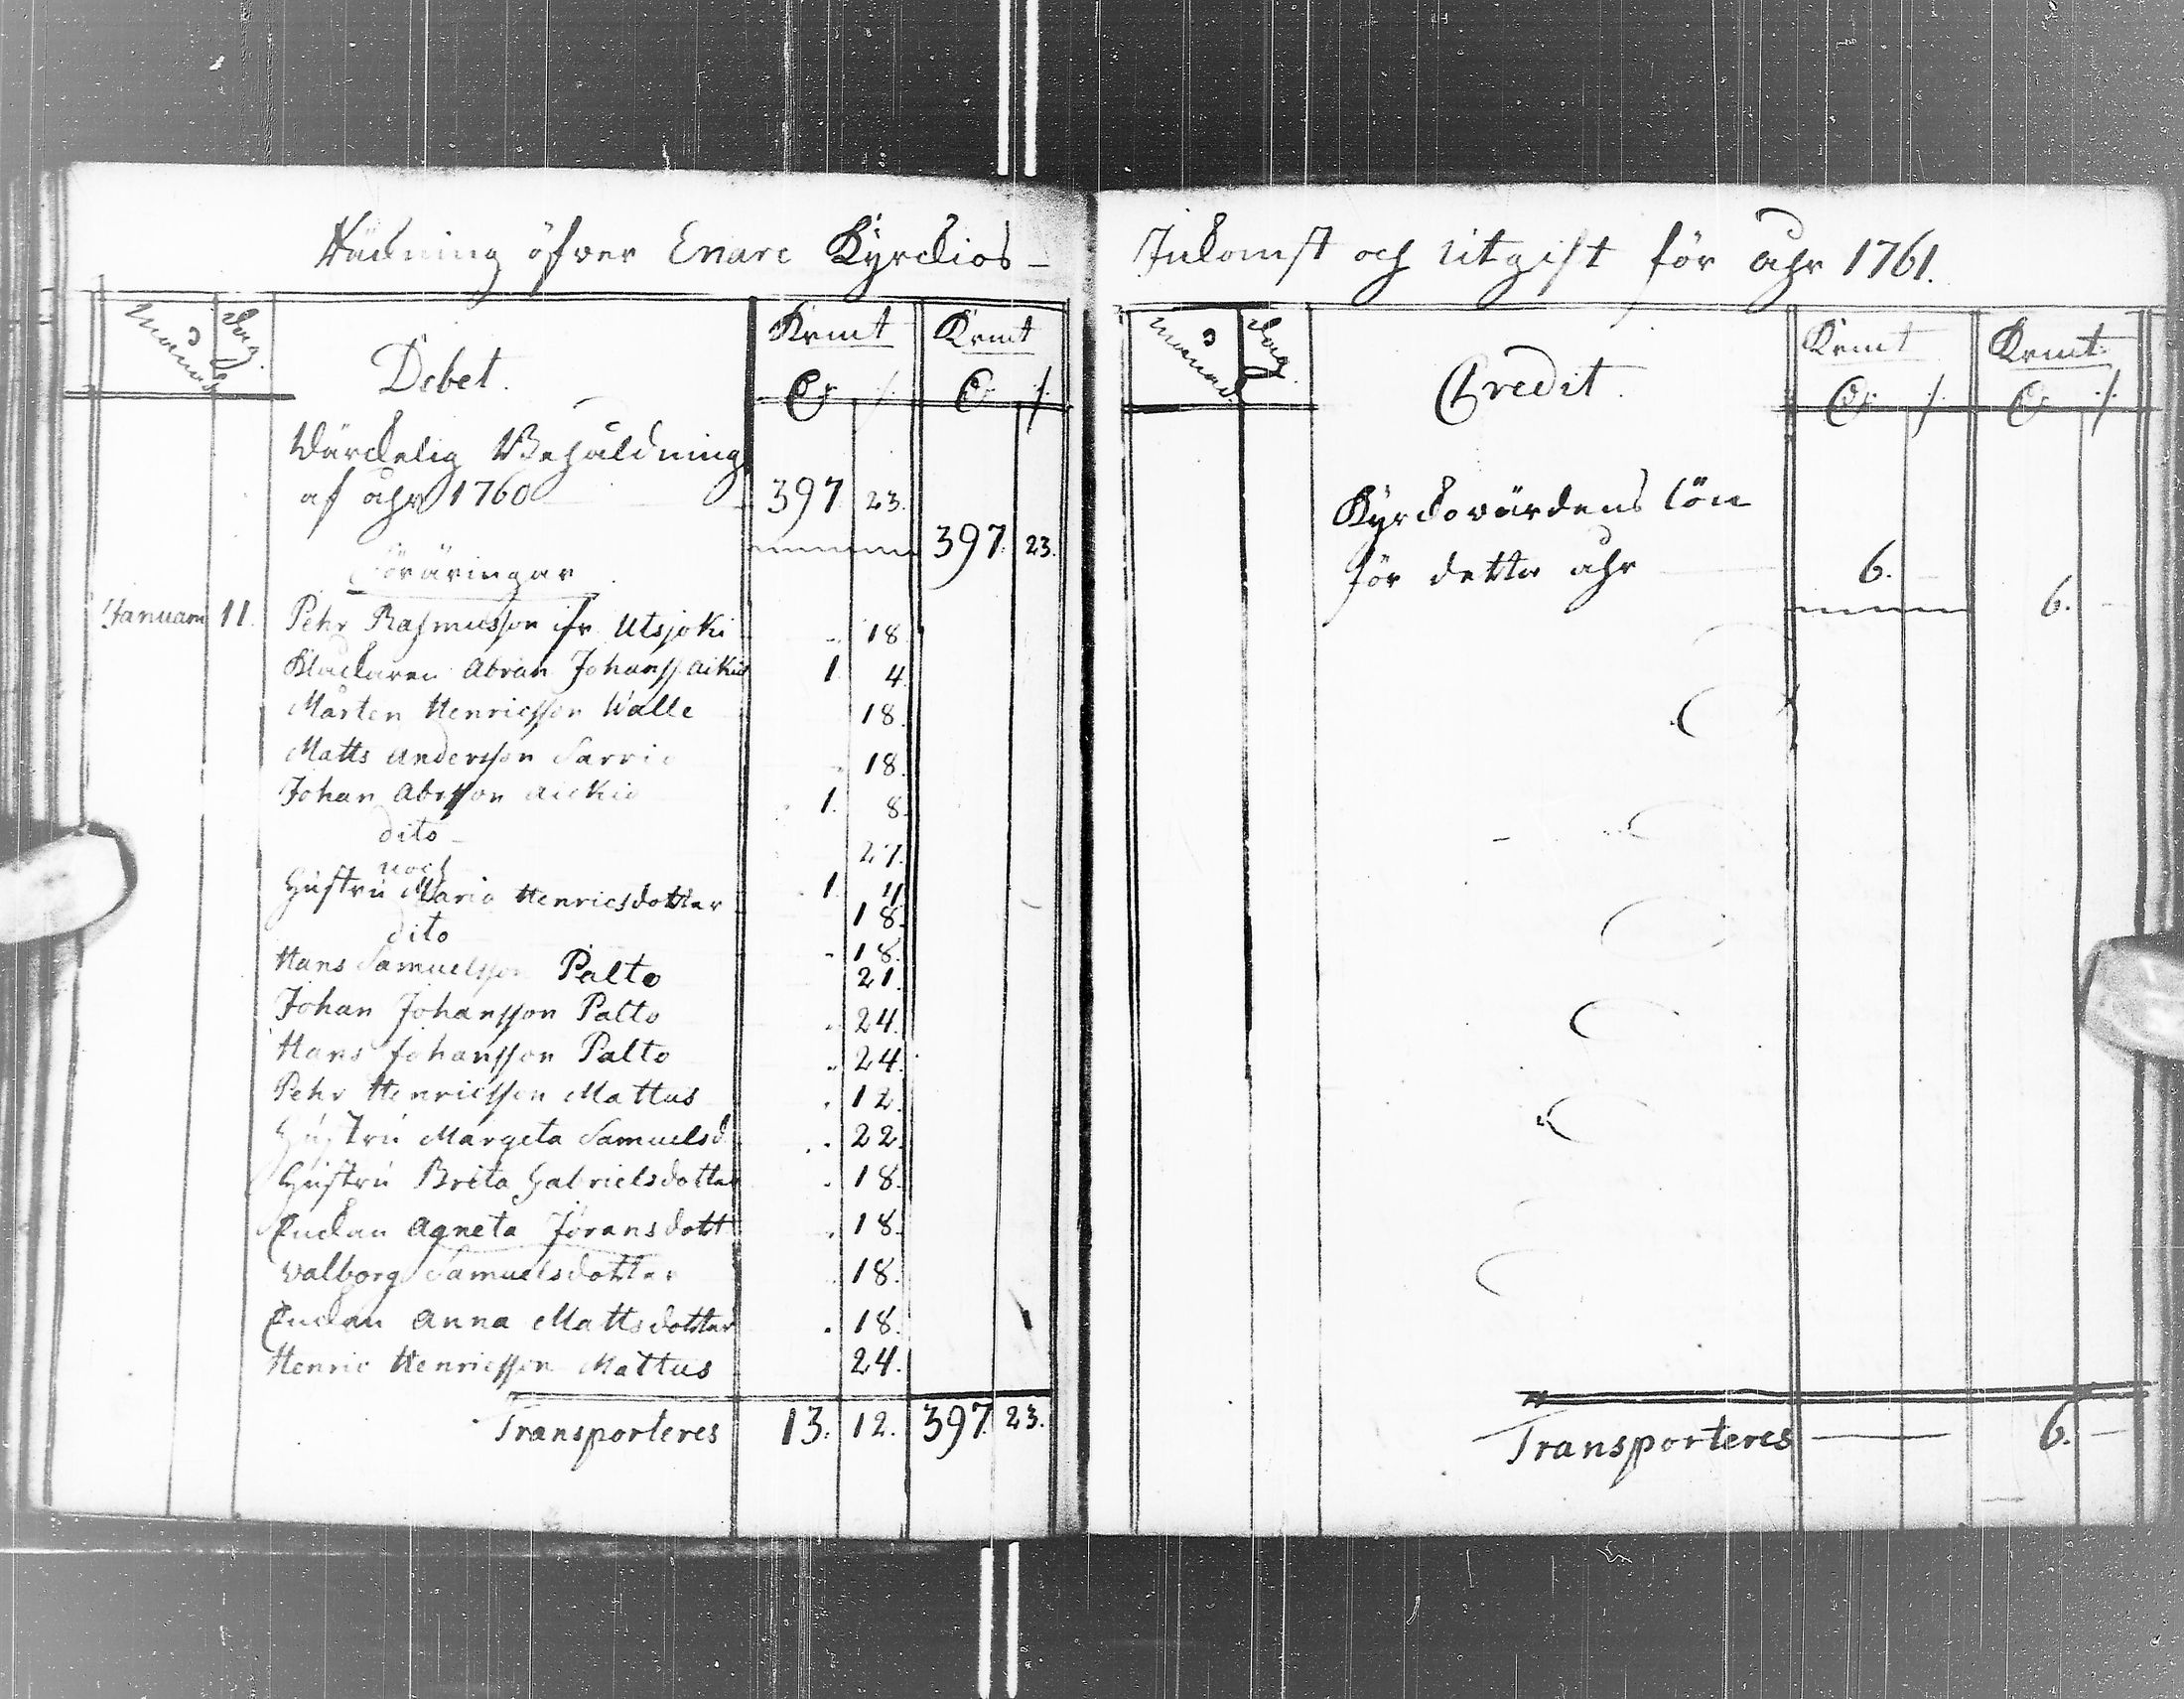 Räckning öfver Enare Kyrckios-
Månad Dag. Debet. Krmt Krmt
Wärckelig Behåldning
af åhr 1760 397 23.
397. 23.
Föräringar
Januarii 11. Pehr Rasmusson ifr. Utsjoki .. 18
Klockaren Abrah Johanss. Aikio 1 4
Mårten Henricsson Walle 18.
Matts Andersson Sarrio 18.
Johan Abrsson Aickio 1. 8.
dito 27.
noch 1. 4
Hustru Maria Henricsdotter 18.
dito 18.
Hans Samuelsson Palto 21.
Johan Johansson Palto 24.
Hans Johansson Palto 24.
Pehr Henricsson Mattus 12.
Hustru Margeta Samuelsd. 22.
Hustru Brita Gabrielsdotter 18.
Enckan Agneta Joransdott 18.
Valborg Samuelsdotter 18.
Enckan Anna Mattsdotter 18.
Henric Henricsson Mattus 24.
Transporteres 13. 12. 397. 23.
Inkomst och Utgift för åhr 1761.
Månad Dag. Credit. Krmt Krmt
Kyrckovärdens lön
för detta åhr 6.
6. -
Transporteres 6. -